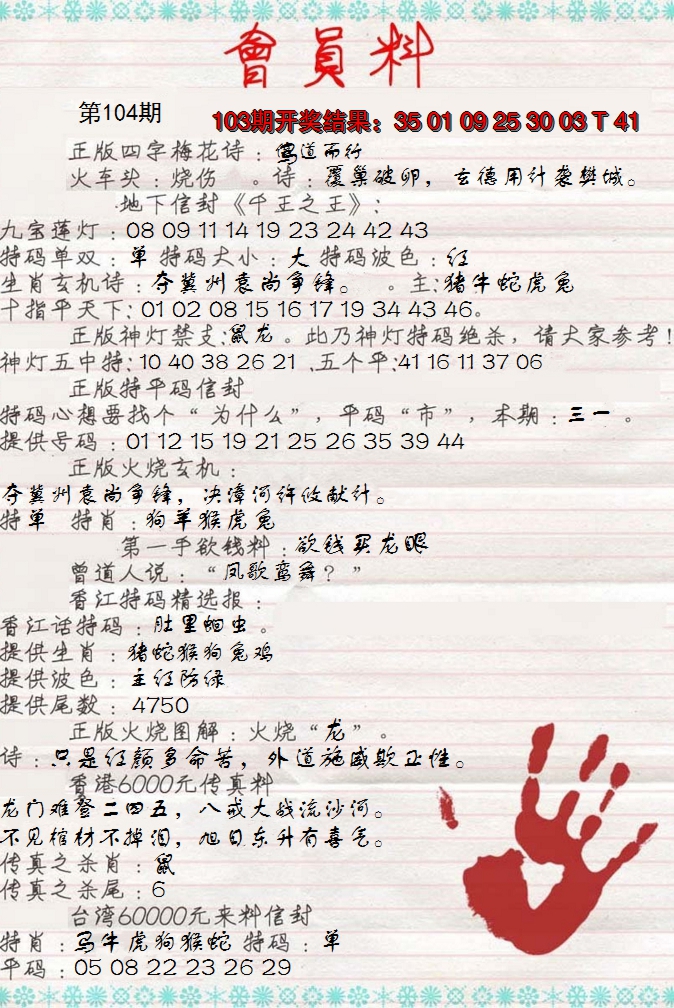 會員料
第104期
103期开奖结果：35 01 09 25 30 03 T 41
正版四字梅花诗：鴬道而行
火车头：烧伤 。诗：覆巢破卵，玄德用计袭樊城。
地下信封《千王之王》：
九宝莲灯：08 09 11 14 19 23 24 42 43
特码单双：单 特码大小：大 特码波色：红
生肖玄机诗：夺冀州袁尚争锋。 。主:猪牛蛇虎兔
十指平天下: 01 02 08 15 16 17 19 34 43 46。
正版神灯禁支:鼠龙。此乃神灯特码绝杀，请大家参考！
神灯五中特: 10 40 38 26 21 .五个平:41 16 11 37 06
正版特平码信封
特码心想要找个“为什么”，平码“市”，本期：三一 。
提供号码：01 12 15 19 21 25 26 35 39 44
正版火烧玄机：
夺冀州袁尚争锋，决漳河许攸献计。
特单 特肖：狗羊猴虎兔
第一手欲钱料：欲钱买龙眼
曾道人说：“凤歌鸾舞？”
香江特码精选报：
香江话特码：肚里蛔虫。
提供生肖：猪蛇猴狗兔鸡
提供波色：主红防绿
提供尾数：4750
正版火烧图解：火烧“龙”。
诗：只是红颜多命苦，外道施威欺正性。
香港6000元传真料
龙门难登二四五，八戒大战流沙河。
不见棺材不掉泪，旭日东升有喜气。
传真之杀肖：鼠
传真之杀尾：6
台湾60000元来料信封
特肖：马牛虎狗猴蛇 特码：单
平码：05 08 22 23 26 29